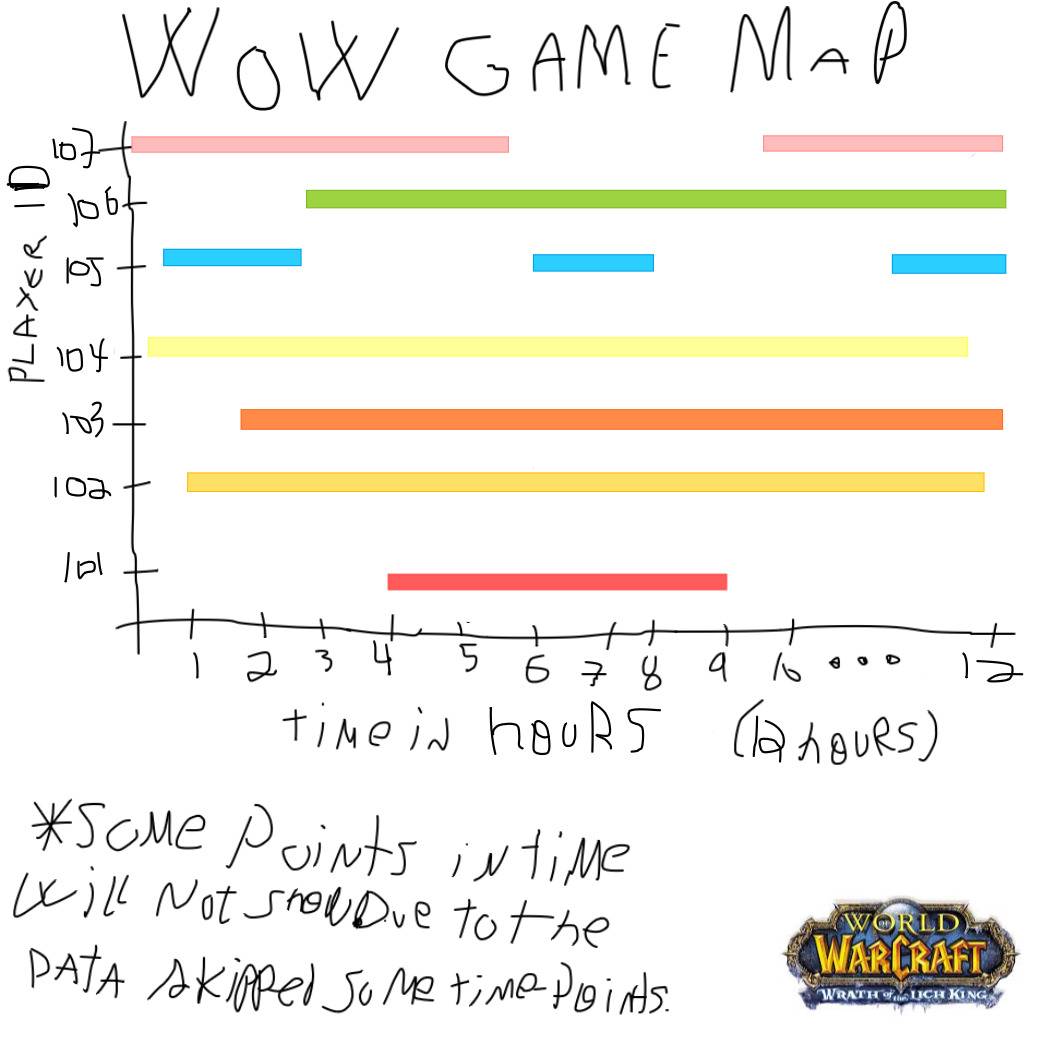 WOW GAME MAP
PLAYER ID
107
106
105
104
103
102
101
1 2 3 4 5 6 7 8 9 10 ... 12
time in hours (12 hours)
*Some Points in time
will Not show Due to the
DATA skipped some time Points.
WORLD
OF
WARCRAFT
WRATH of the LICH KING